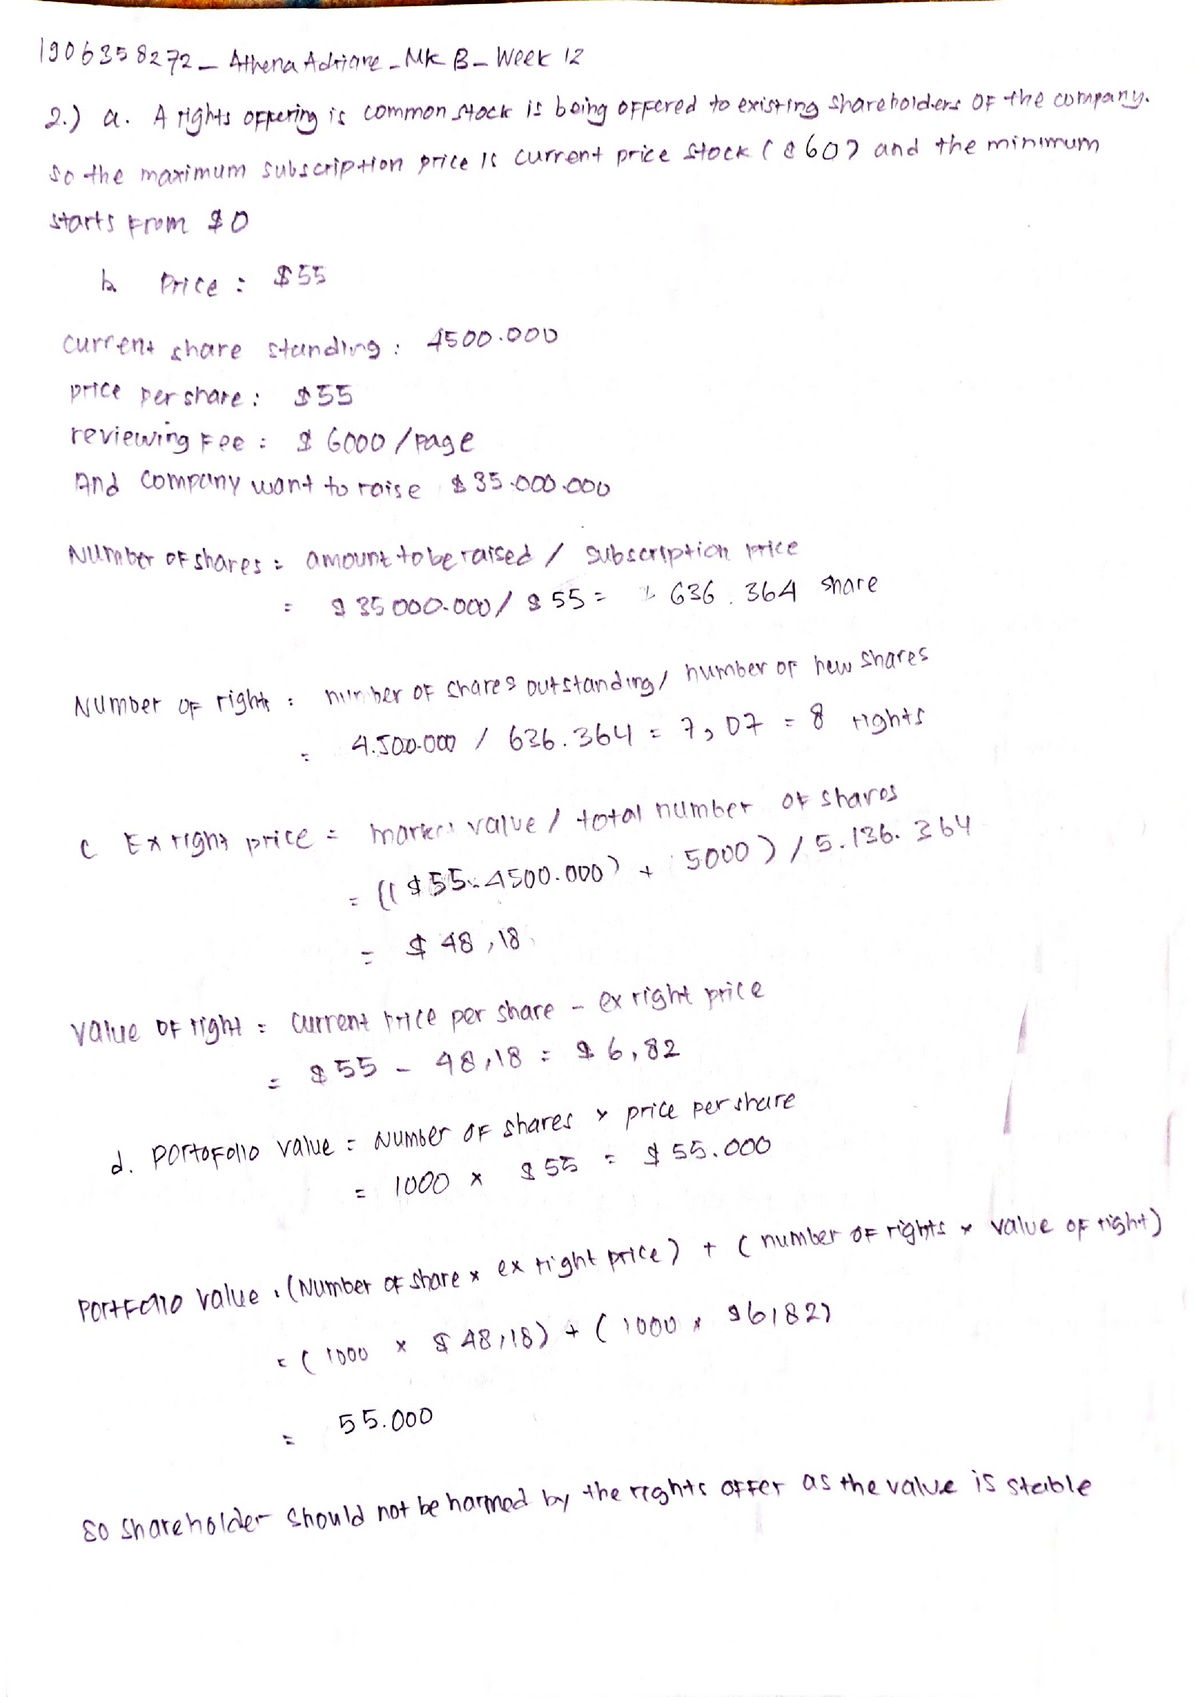 1906358272_ Athena Adriane _ MK B_ Week 12
2.) a. A rights offering is common stock is being offered to existing shareholders of the company.
So the maximum subscription price is current price stock ($ 60) and the minimum
starts from $0
b. Price : $55
current share standing : 4500.000
price per share : $55
reviewing fee : $ 6000 / page
And Company want to raise $ 35.000.000
Number of shares = amount to be raised / subscription price
= $ 35 000.000 / $ 55 = 636.364 share
Number of right : number of shares outstanding / number of new shares
= 4.500.000 / 636.364 = 7,07 = 8 rights
c Ex right price = market value / total number of shares
= (( $55 × 4500.000) + 5000 ) / 5.136.364
= $ 48,18
Value of right = current price per share - ex right price
= $ 55 - 48,18 = $ 6,82
d. Portofolio value = Number of shares × price per share
= 1000 × $ 55 = $ 55.000
Portfolio value = (Number of share × ex right price) + ( number of rights × value of right)
= ( 1000 × $ 48,18) + ( 1000 × $6,82)
= 55.000
So shareholder should not be harmed by the rights offer as the value is stable